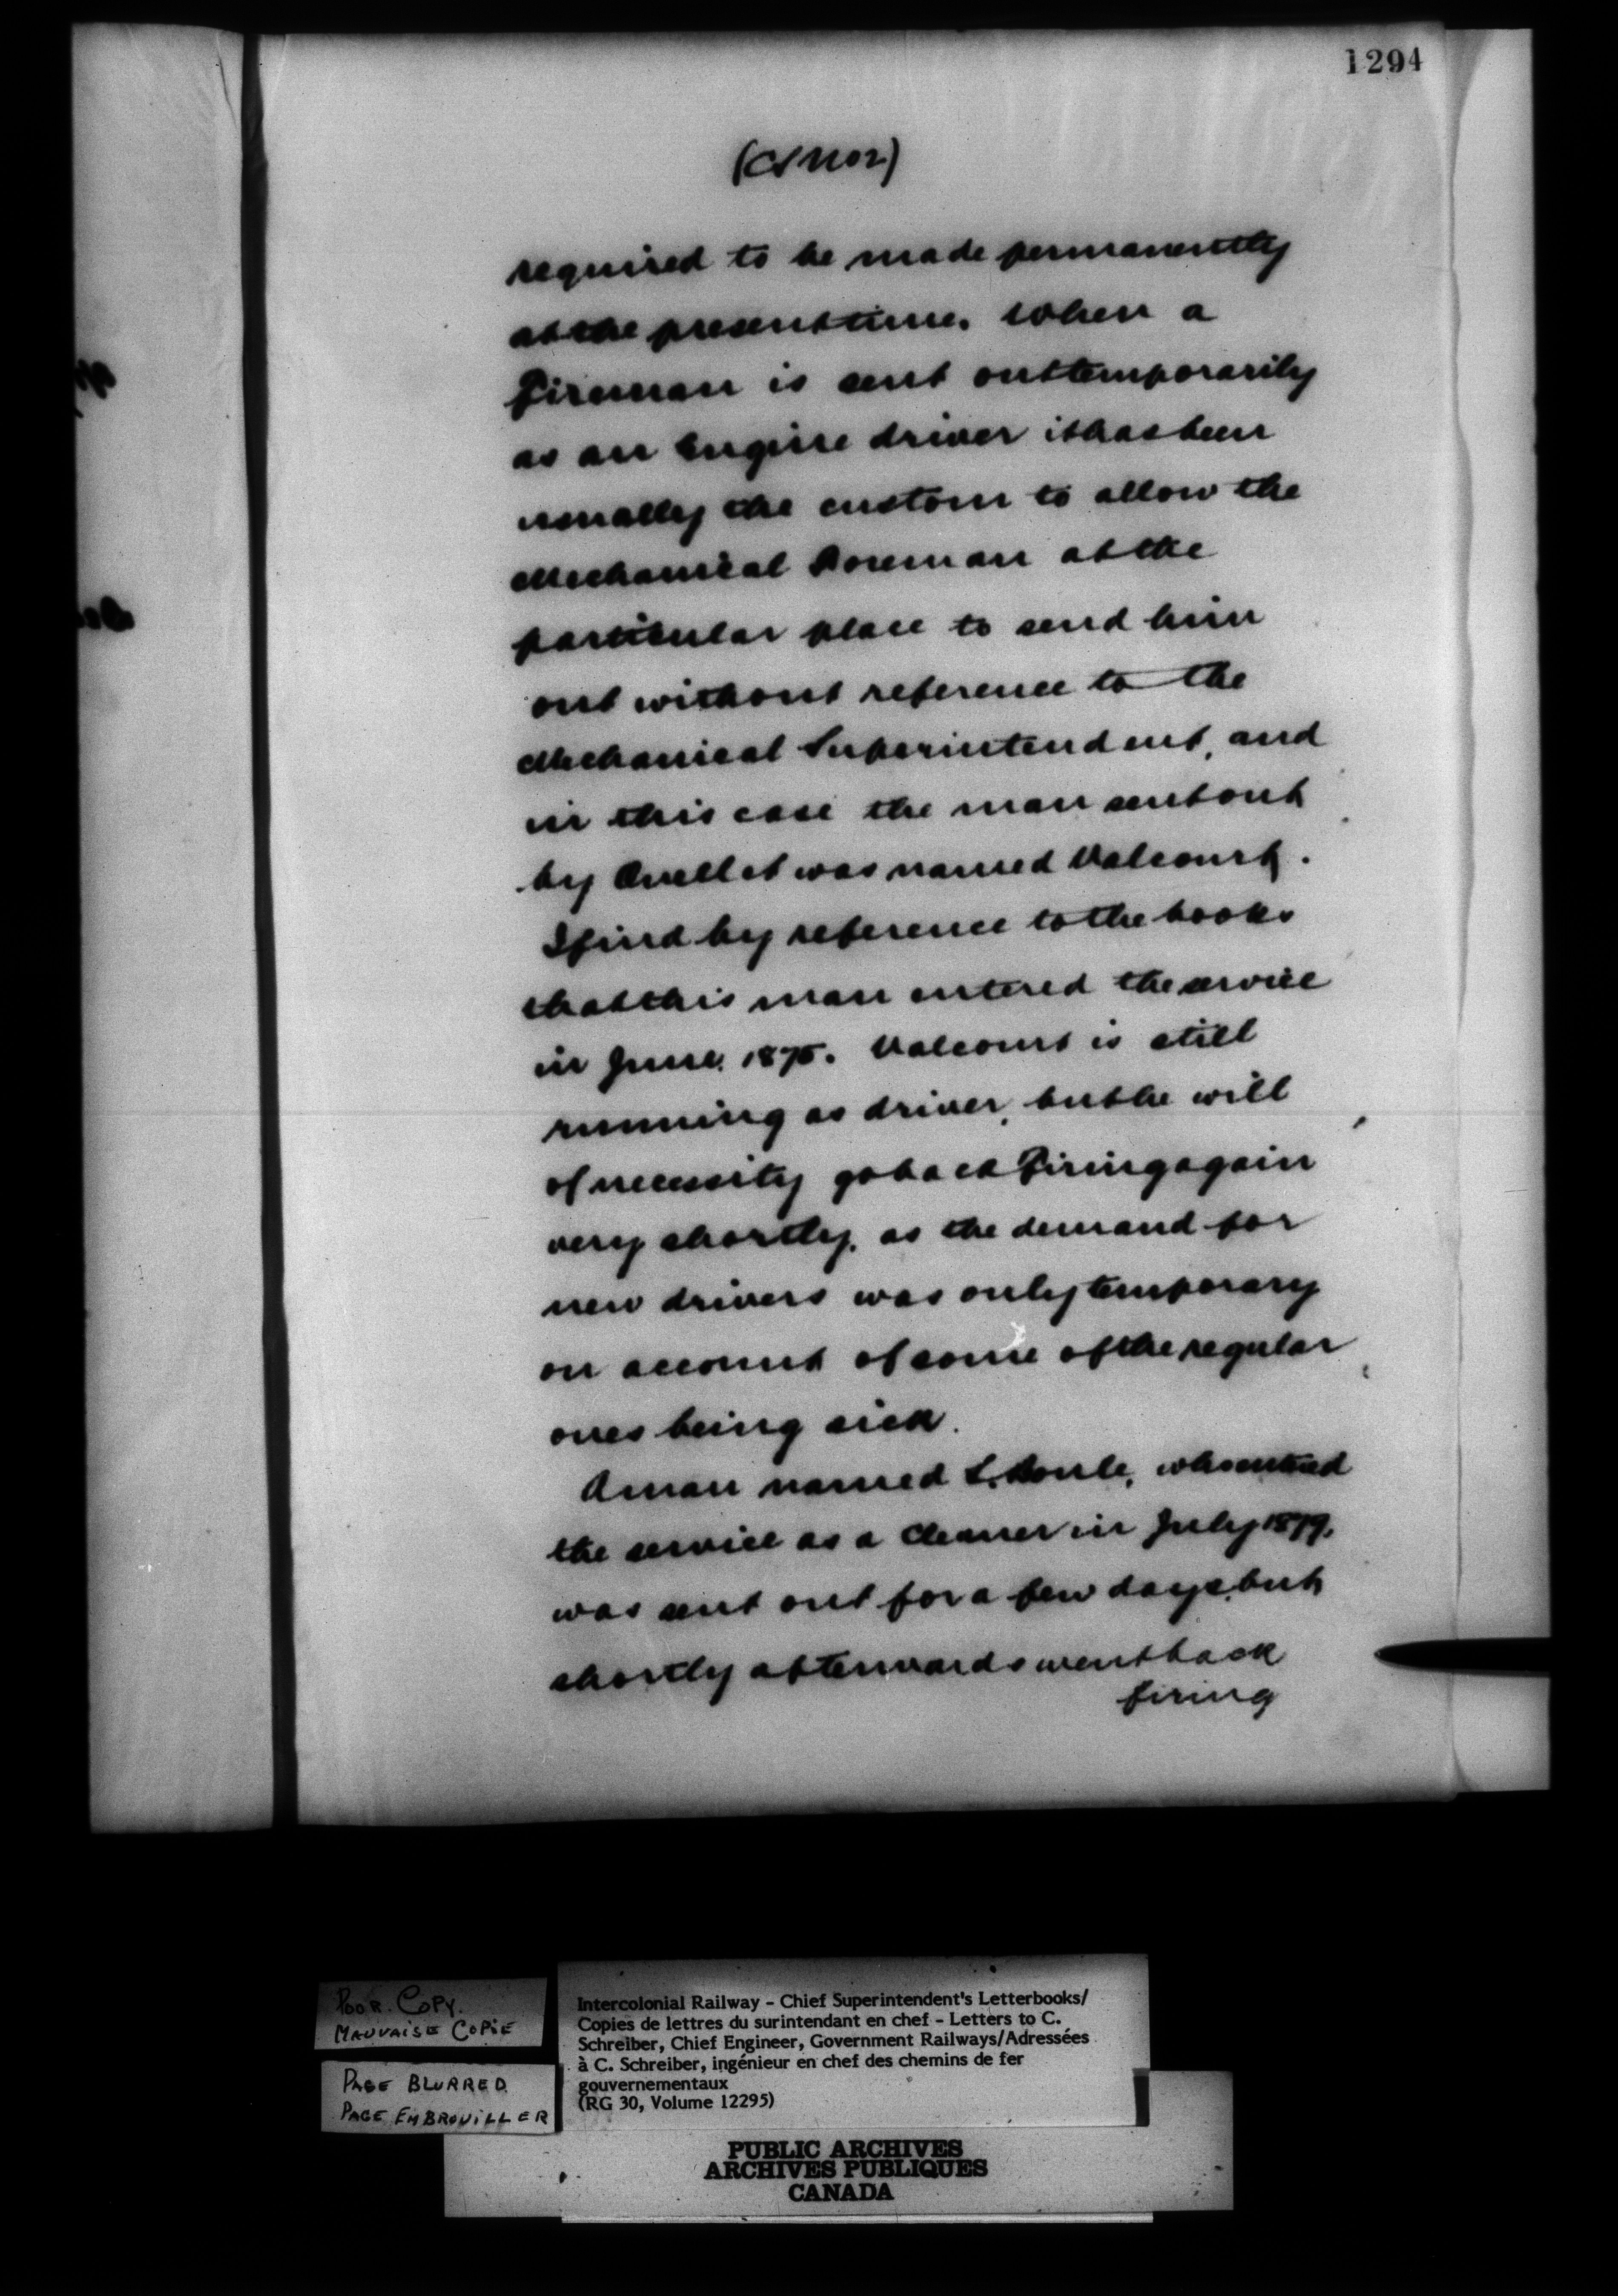 1294
required to be made permanently
at the present time. When a
Fireman is sent out temporarily
as an Engine driver it has been
usually the custom to allow the
Mechanical Foreman at the
particular place to send him
out without reference to the
Mechanical Superintendent, and
in this case the man sent out
by Ouellet was named Valcourt.
I find by reference to the books
that this man entered the service
in June, 1875. Valcourt is still
running as driver, but he will
of necessity go back Firing again
very shortly, as the demand for
new drivers was only temporary
on account of some of the regular
ones being sick.
A man named L. who entered
the service as a Cleaner in July 1879,
was sent out for a few days, but
shortly afterwards went back
firing
POOR. COPY.
MAUVAISE COPIE
PAGE BLURRED.
PAGE EMBROUILLER
Intercolonial Railway - Chief Superintendent's Letterbooks/
Copies de lettres du surintendant en chef - Letters to C.
Schreiber, Chief Engineer, Government Railways/Adressées
à C. Schreiber, ingénieur en chef des chemins de fer
gouvernementaux
(RG 30, Volume 12295)
PUBLIC ARCHIVES
ARCHIVES PUBLIQUES
CANADA